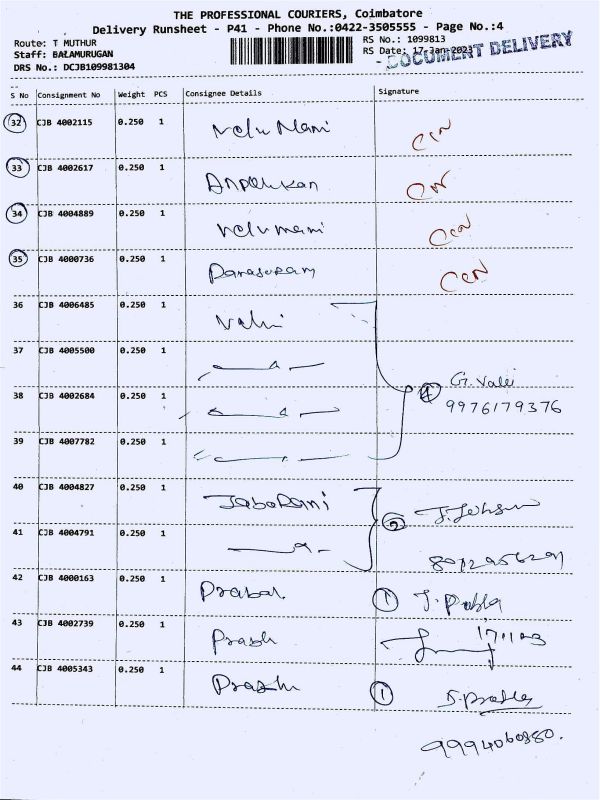 THE PROFESSIONAL COURIERS, Coimbatore
Delivery Runsheet - P41 - Phone No.:0422-3505555 - Page No.:4
Route: T MUTHUR
RS No.: 1099813
Staff: BALAMURUGAN
RS Date: 17-Jan-2023
DOCUMENT DELIVERY
DRS No.: DCJB109981304
S No Consignment No Weight PCS Consignee Details Signature
32 CJB 4002115 0.250 1 Velu Mani
33 CJB 4002617 0.250 1
34 CJB 4004889 0.250 1 Velumani
35 CJB 4000736 0.250 1 Parasuram
36 CJB 4006485 0.250 1
37 CJB 4005500 0.250 1
4 G. Valli
38 CJB 4002684 0.250 1 9976179376
39 CJB 4007782 0.250 1
40 CJB 4004827 0.250 1 JabaRani 2
41 CJB 4004791 0.250 1
42 CJB 4000163 0.250 1 1
43 CJB 4002739 0.250 1
44 CJB 4005343 0.250 1 1